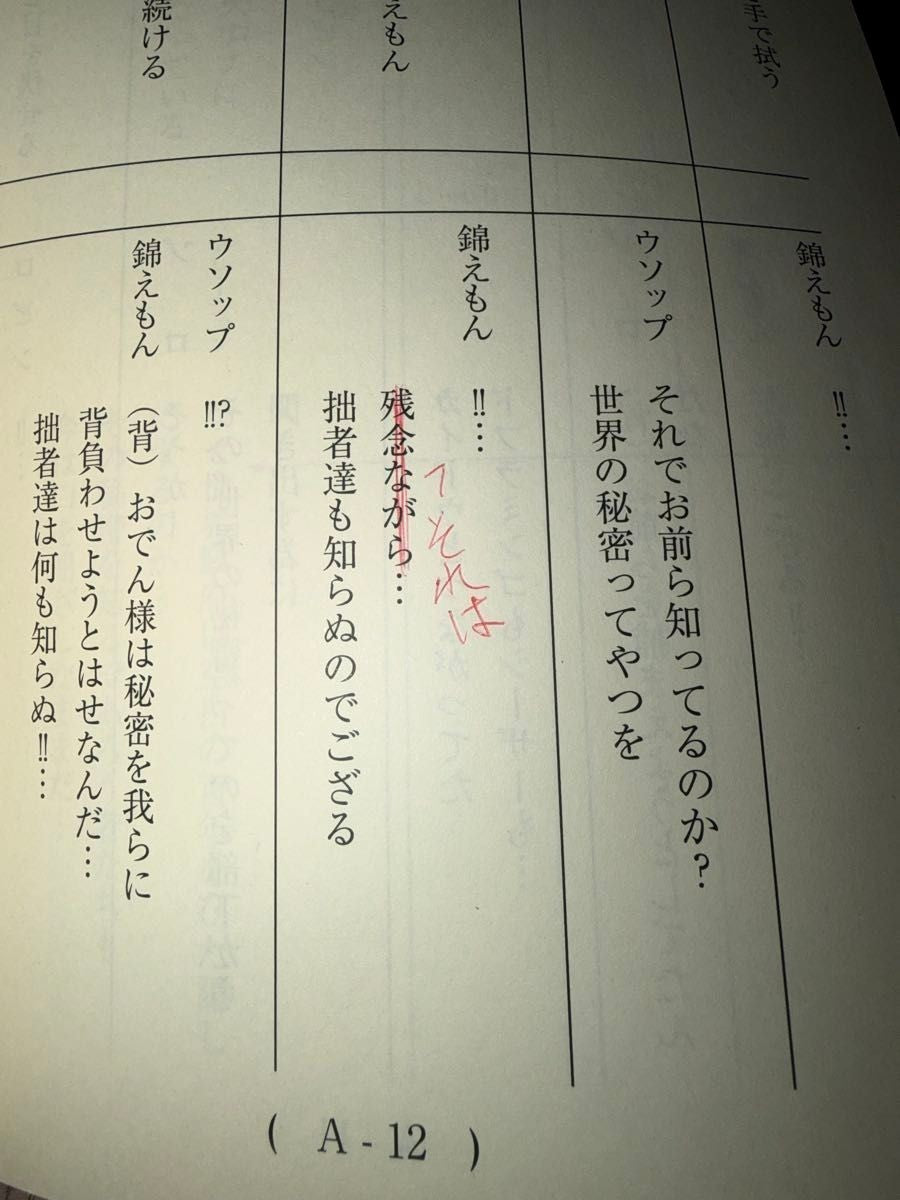 手で拭う
えもん
続ける
錦えもん
‼…
ウソップ
それでお前ら知ってるのか？
世界の秘密ってやつを
錦えもん
‼…
それは
残念ながら…
拙者達も知らぬのでござる
ウソップ
⁉
錦えもん
（背）おでん様は秘密を我らに
背負わせようとはせなんだ…
拙者達は何も知らぬ‼…
( A - 12 )